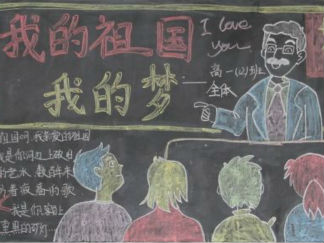 我的祖国
我的梦
I love
you
高一(2)班
全体
祖国呵，我亲爱的祖国
我是你河边上破旧
的老水车，数百年来
纺着疲惫的歌
我是你额上
熏黑的矿灯